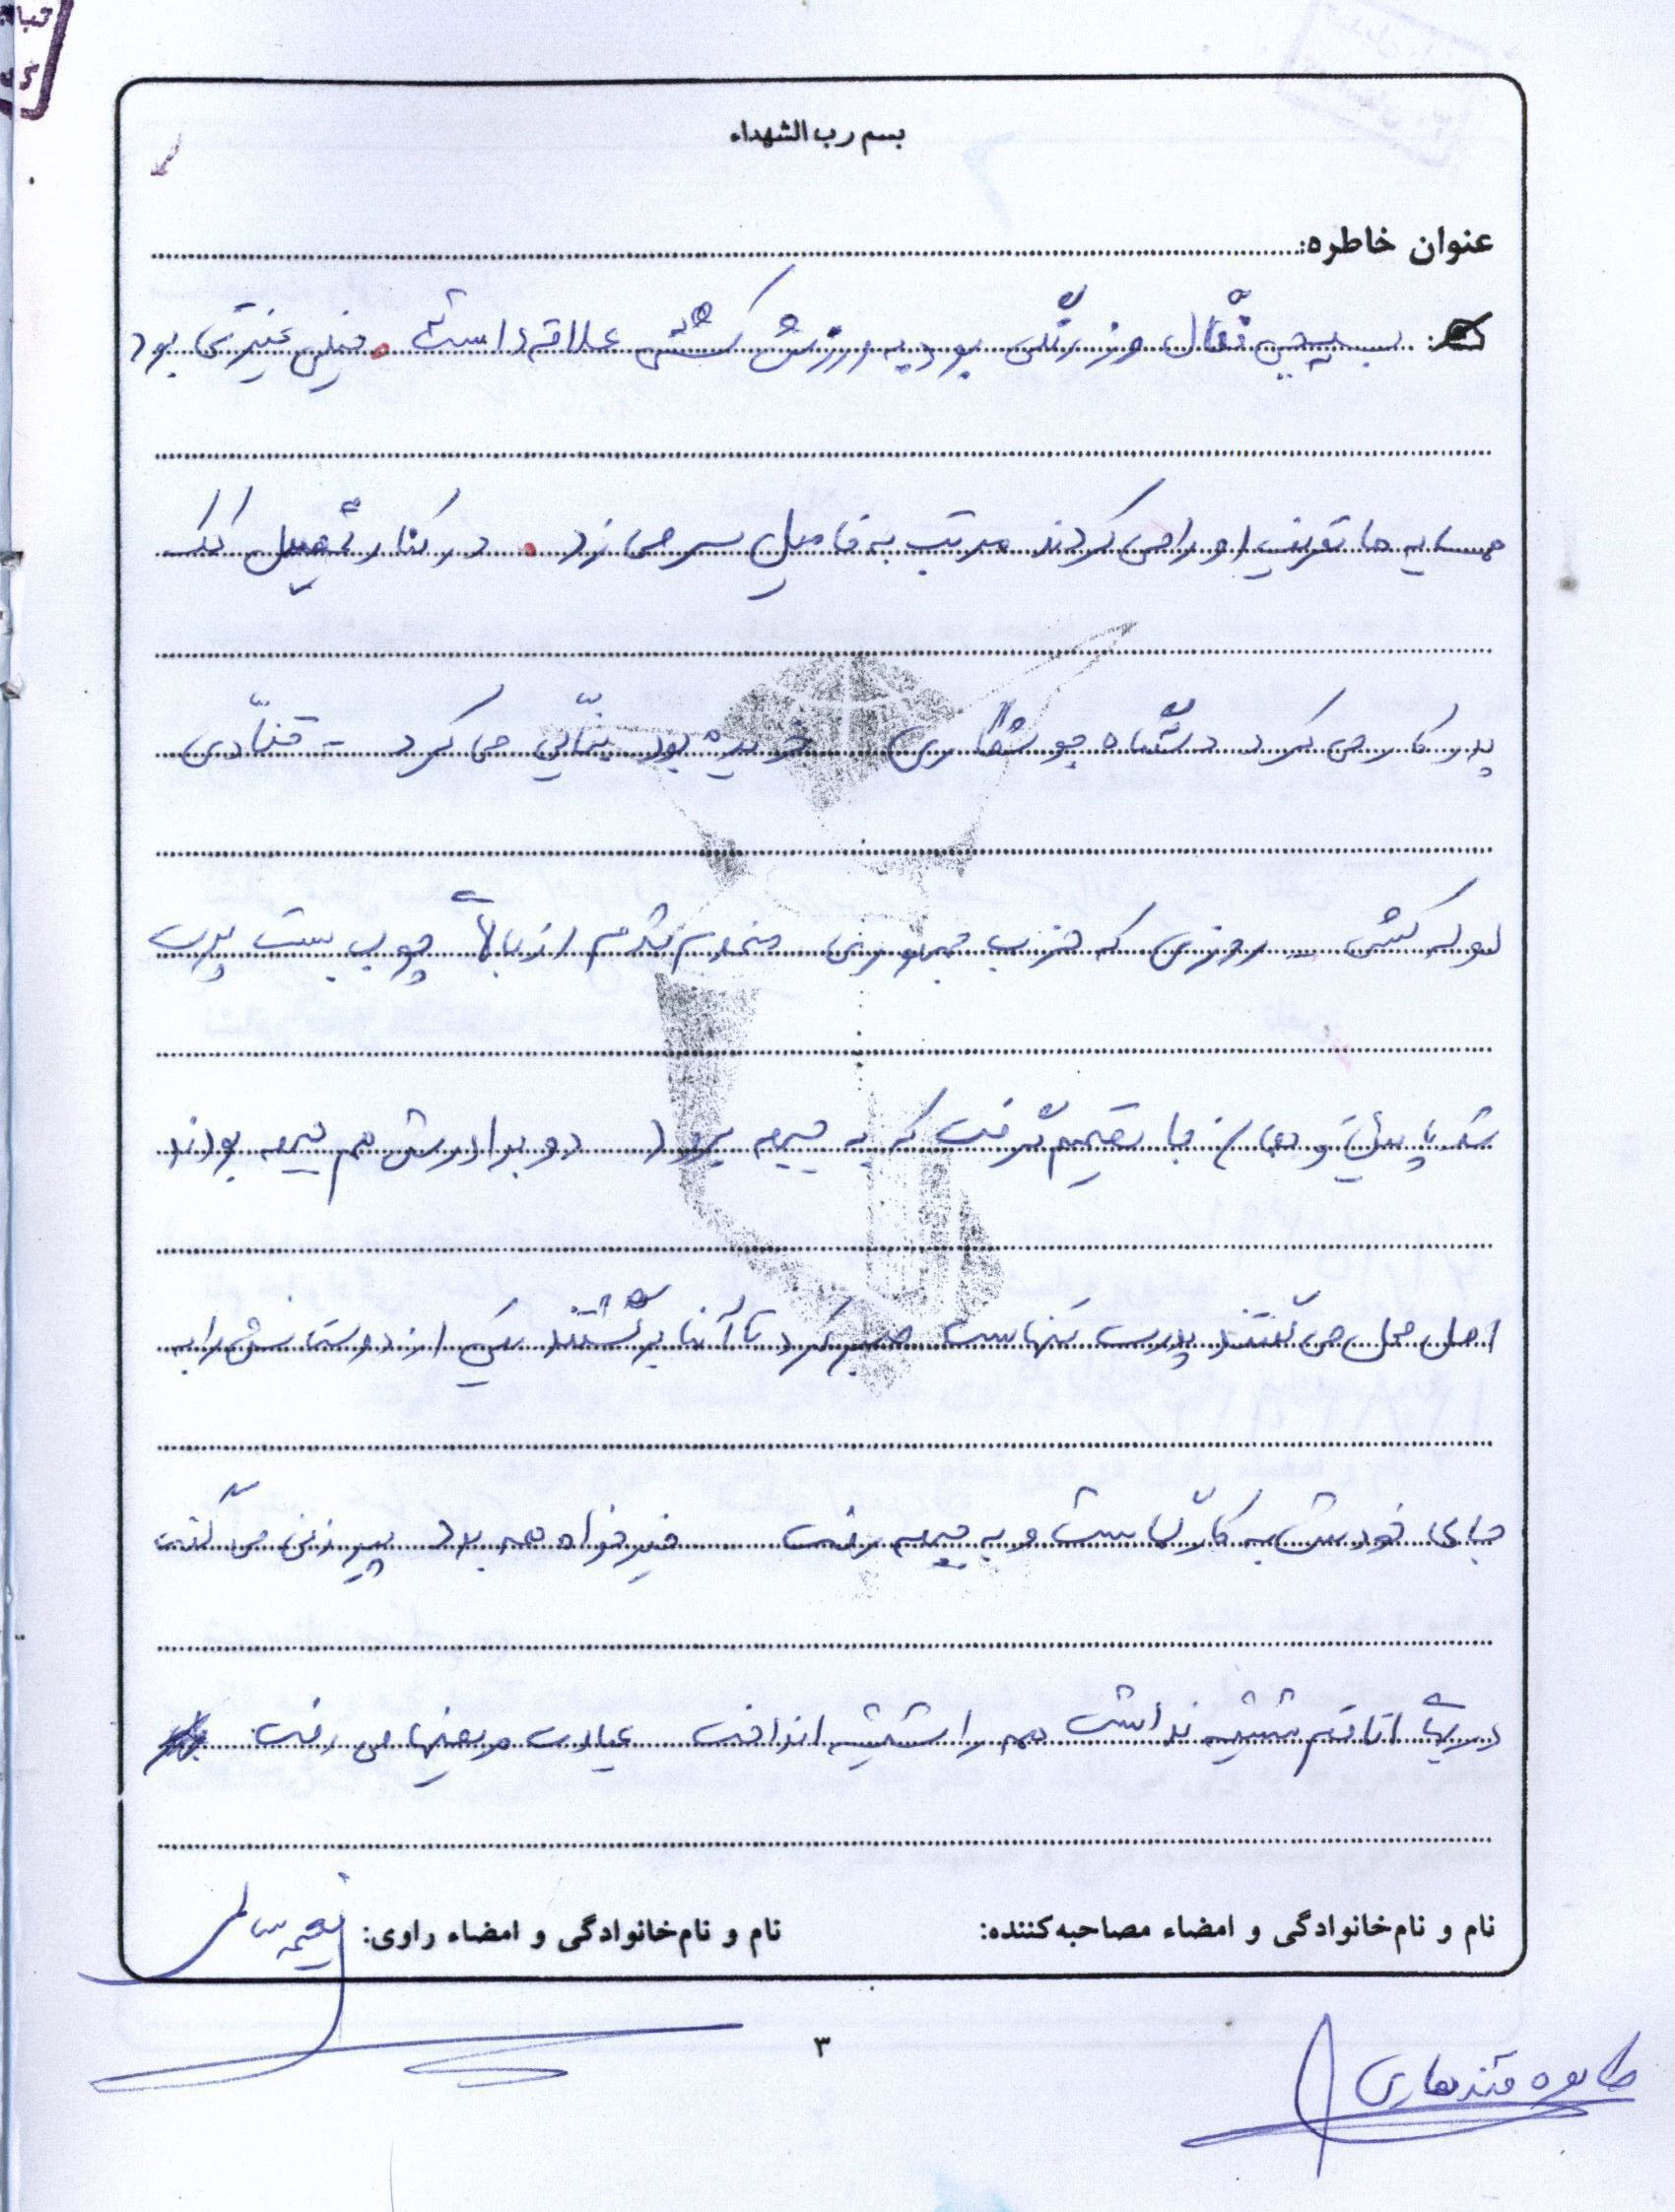 بسم رب الشهداء
عنوان خاطره:
بسیجی فعال و زرنگی بود به ورزش کشتی علاقه داشت . خیلی غیرتی بود
همسایه ها تعریف او را می کردند مرتب به فامیل سر می زد . در کنار تحصیل کمک
پدر کار می کرد دستگاه جوشکاری خریده بود بنّایی می کرد - قنّادی
لوله کشی - روزی که حزب جمهوری منفجر شد از بالای چوب بست پرت
شد پایین و همان جا تصمیم گرفت که به جبهه برود دو برادرش هم جبهه بودند
اهل محل می گفتند پدرت تنهاست صبر کرد تا آنها برگشتند یکی از دوستانش را به
جای خودش به کار گماشت و به جبهه رفت خیرخواه همه بود پیرزنی می گفت
در اتاقم شیشه نداشت همه را شیشه انداخت عیادت مریضها می رفت
نام و نام‌خانوادگی و امضاء مصاحبه‌کننده:
نام و نام‌خانوادگی و امضاء راوی:
۳
طاهره قندهاری